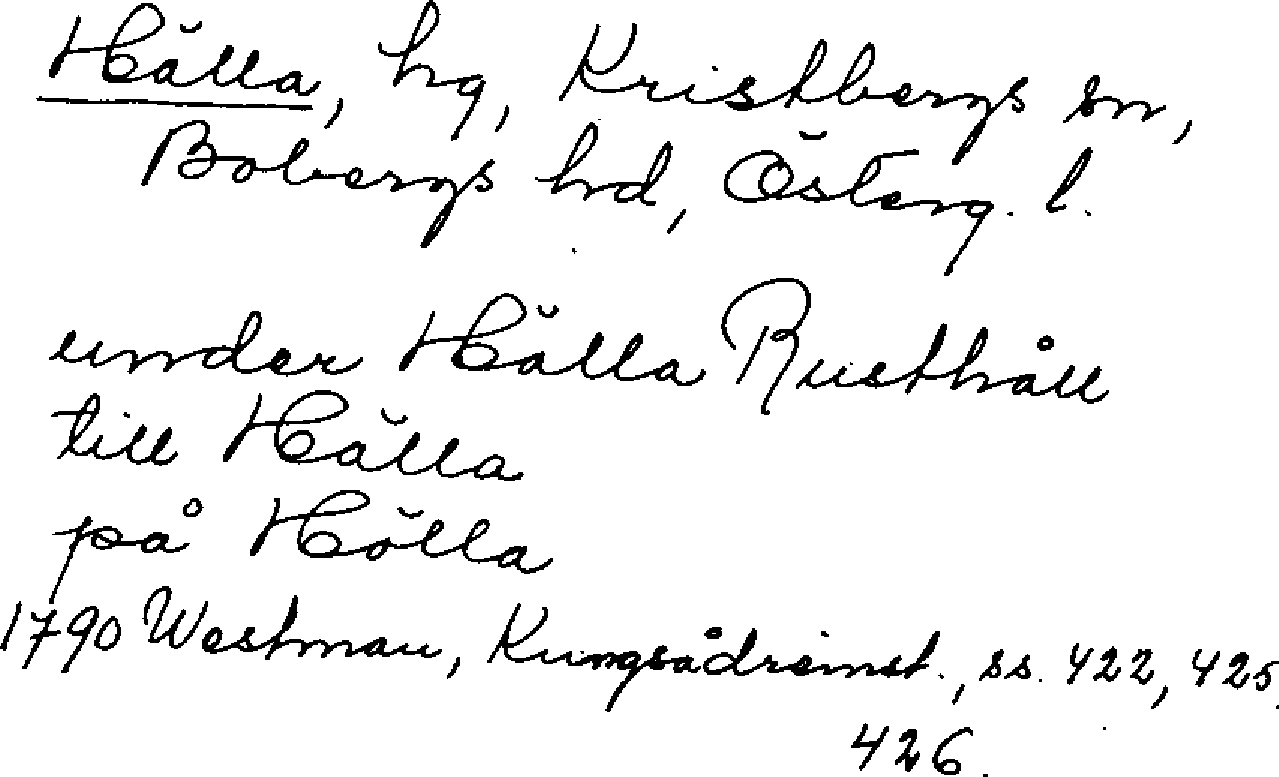 Hälla, hg, Kristbergs sn,
Bobergs hd, Österg. l.
under Hälla Rusthåll
till Hälla
på Hölla
1790 Westman, Kungsådreinst., ss. 422, 425,
426.